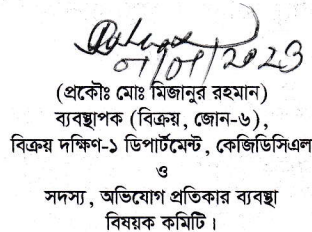 ২০২৩
(প্রকৌঃ মোঃ মিজানুর রহমান)
ব্যবস্থাপক (বিক্রয়, জোন-৬),
বিক্রয় দক্ষিণ-১ ডিপার্টমেন্ট, কেজিডিসিএল
ও
সদস্য, অভিযোগ প্রতিকার ব্যবস্থা
বিষয়ক কমিটি।